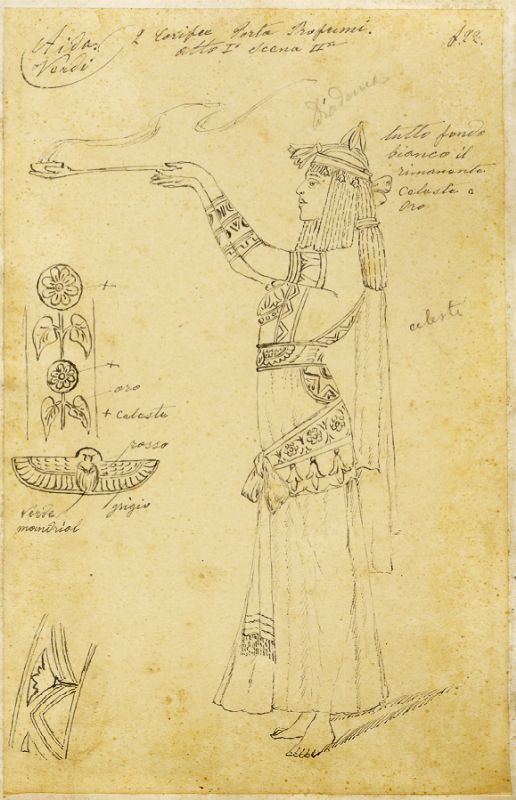 Aida.
Verdi
2 Corifee Porta Profumi.
atto Iº Scena IIª
f.22.
tutto fondo
bianco il
rimanente
Celeste e
Oro
celesti
+
+
oro
+ Celeste
rosso
Verde
grigio